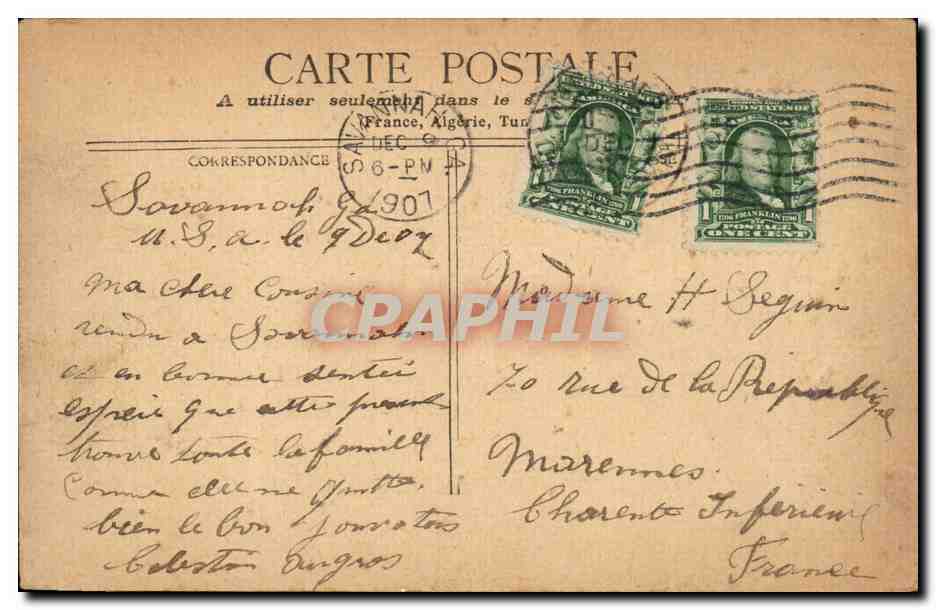 CARTE POSTALE
A utiliser seulement dans le s
(France, Algérie, Tun
CORRESPONDANCE
SAVANNAH, GA.
DEC 9
6-PM
1907
UNITED STATES OF
AMERICA
1706 FRANKLIN 1790
POSTAGE
1 ONE CENT
UNITED STATES OF
AMERICA
1706 FRANKLIN 1790
POSTAGE
1 ONE CENT 1
Savannah Ga
U. S. a. le 9 Dec 07
Ma chere Cousine
rendu a Savannah
et en bonne santée
espeir que cette present
trouve toute la famille
comme elle me quitte
bien le bon jour a tous
Celestin
Madame H Seguin
70 rue de la Republique
Marennes.
Charente Inferieure
France
CPAPHIL